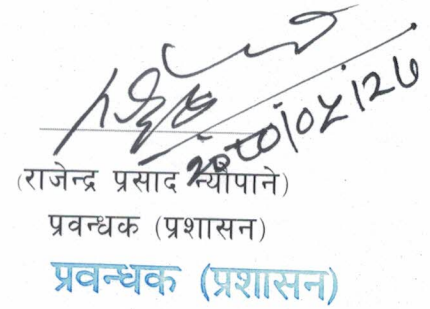 २०८०।०५।२७
(राजेन्द्र प्रसाद न्यौपाने)
प्रवन्धक (प्रशासन)
प्रवन्धक (प्रशासन)